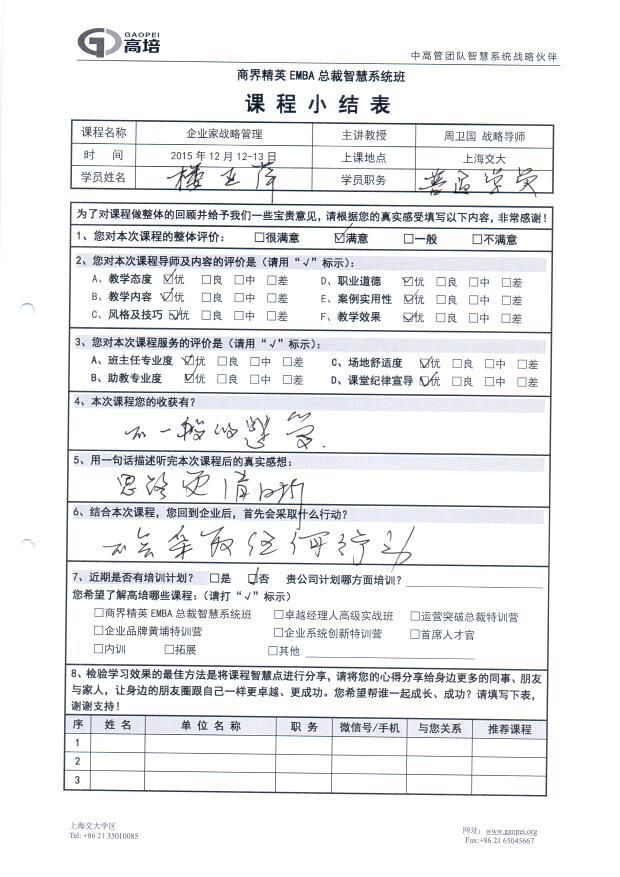 GAOPEI
高培
中高管团队智慧系统战略伙伴
商界精英 EMBA 总裁智慧系统班
课程小结表
课程名称 企业家战略管理 主讲教授 周卫国 战略导师
时 间 2015年12月12-13日 上课地点 上海交大
学员姓名 楼亚萍 学员职务 普通学员
为了对课程做整体的回顾并给予我们一些宝贵意见，请根据您的真实感受填写以下内容，非常感谢！
1、您对本次课程的整体评价： □很满意 ☑满意 □一般 □不满意
2、您对本次课程导师及内容的评价是（请用“√”标示）：
A、教学态度 ☑优 □良 □中 □差 D、职业道德 ☑优 □良 □中 □差
B、教学内容 ☑优 □良 □中 □差 E、案例实用性 ☑优 □良 □中 □差
C、风格及技巧 ☑优 □良 □中 □差 F、教学效果 ☑优 □良 □中 □差
3、您对本次课程服务的评价是（请用“√”标示）：
A、班主任专业度 ☑优 □良 □中 □差 C、场地舒适度 ☑优 □良 □中 □差
B、助教专业度 ☑优 □良 □中 □差 D、课堂纪律宣导 ☑优 □良 □中 □差
4、本次课程您的收获有？
不一般的
5、用一句话描述听完本次课程后的真实感想：
思路更清晰
6、结合本次课程，您回到企业后，首先会采取什么行动？
不会采取任何行动
7、近期是否有培训计划？ □是 ☑否 贵公司计划哪方面培训？
您希望了解高培哪些课程：（请打“√”标示）
□商界精英 EMBA 总裁智慧系统班 □卓越经理人高级实战班 □运营突破总裁特训营
□企业品牌黄埔特训营 □企业系统创新特训营 □首席人才官
□内训 □拓展 □其他
8、检验学习效果的最佳方法是将课程智慧点进行分享，请将您的心得分享给身边更多的同事、朋友
与家人，让身边的朋友圈跟自己一样更卓越、更成功。您希望帮谁一起成长、成功？请填写下表，
谢谢支持！
序 姓 名 单 位 名 称 职 务 微信号/手机 与您关系 推荐课程
1
2
3
上海交大学区 网址：www.gaopei.org
Tel: +86 21 35010085 Fax:+86 21 65045667